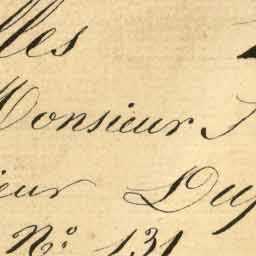 lles
Monsieur
ieur Duf
Nº 131